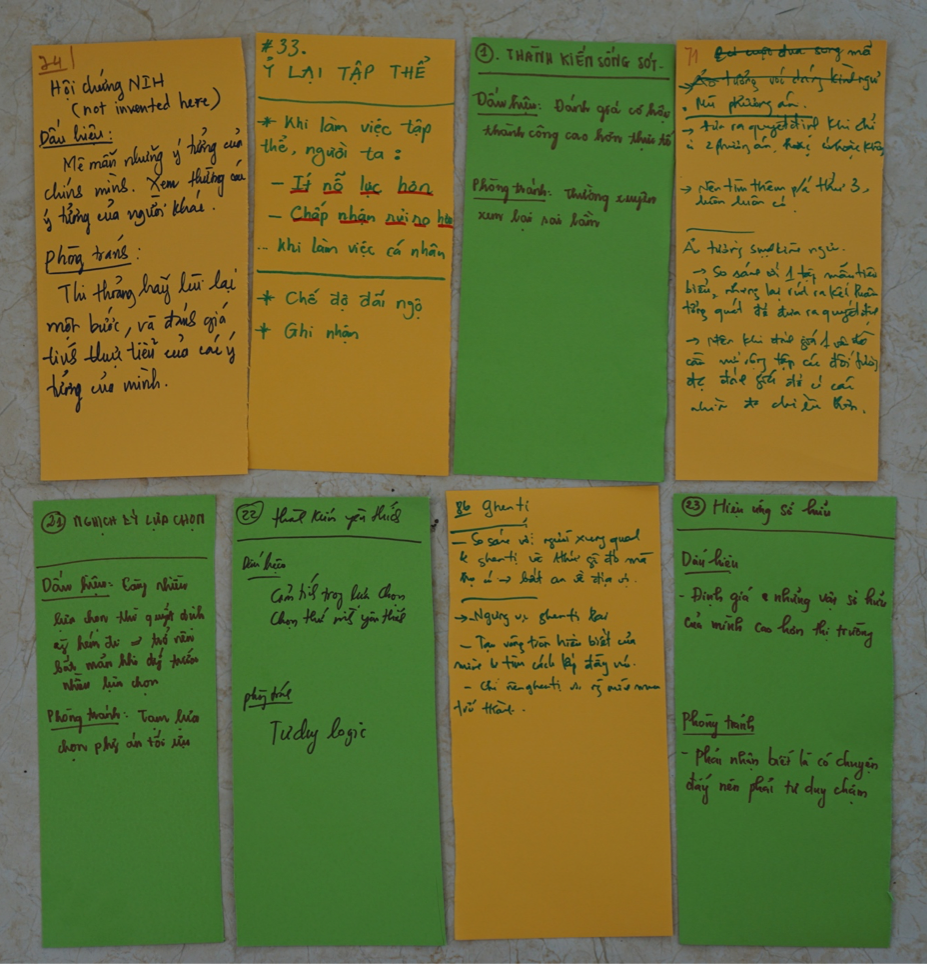 24
Hội chứng NIH
(not invented here)
Dấu hiệu:
Mê mẩn những ý tưởng của
chính mình. Xem thường các
ý tưởng của người khác.
Phòng tránh:
Thi thoảng hãy lùi lại
một bước, và đánh giá
tính thực tiễn của các ý
tưởng của mình.
#33.
Ỷ LẠI TẬP THỂ
* Khi làm việc tập
thể, người ta:
- Ít nỗ lực hơn
- Chấp nhận rủi ro hơn
... khi làm việc cá nhân
* Chế độ đãi ngộ
* Ghi nhận
1. THÀNH KIẾN SỐNG SÓT.
Dấu hiệu: Đánh giá cơ hội
thành công cao hơn thực tế
Phòng tránh: Thường xuyên
xem lại sai lầm
71
phương án.
→ đưa ra quyết định khi chỉ
có 2 phương án, hoặc có hoặc không
→ Nên tìm thêm p/á thứ 3,
luôn luôn có.
→ So sánh với 1 tập mẫu tiêu
biểu, nhưng lại rút ra kết luận
tổng quát để đưa ra quyết định
→ Nên khi đánh giá 1 vấn đề
cần mở rộng tập các đối tượng
để đánh giá để có cái
nhìn đa chiều hơn.
21 NGHỊCH LÝ LỰA CHỌN
Dấu hiệu: Càng nhiều
lựa chọn thì quyết định
kém đi trở nên
bất mãn khi đứng trước
nhiều lựa chọn
Phòng tránh: Tạm lựa
chọn phg án tối ưu
22 thiên kiến yêu thích
Dấu hiệu
Cảm tính trong lựa chọn
Chọn thứ mình yêu thích
phòng tránh
Tư duy logic
86 Ghen tị
- So sánh với người xung quanh
& ghen tị về thứ gì đó mà
họ có → bất an về địa vị.
→ Ngưng vc ghen tị lại
- Tạo vòng tròn hiểu biết của
mình & tìm cách lấp đầy nó.
- Chỉ nên ghen tị mình muốn
trở thành.
23 Hiệu ứng sở hữu
Dấu hiệu
- Định giá những vật sở hữu
của mình cao hơn thị trường
Phòng tránh
- Phải nhận biết là có chuyện
đấy nên phải tư duy chậm